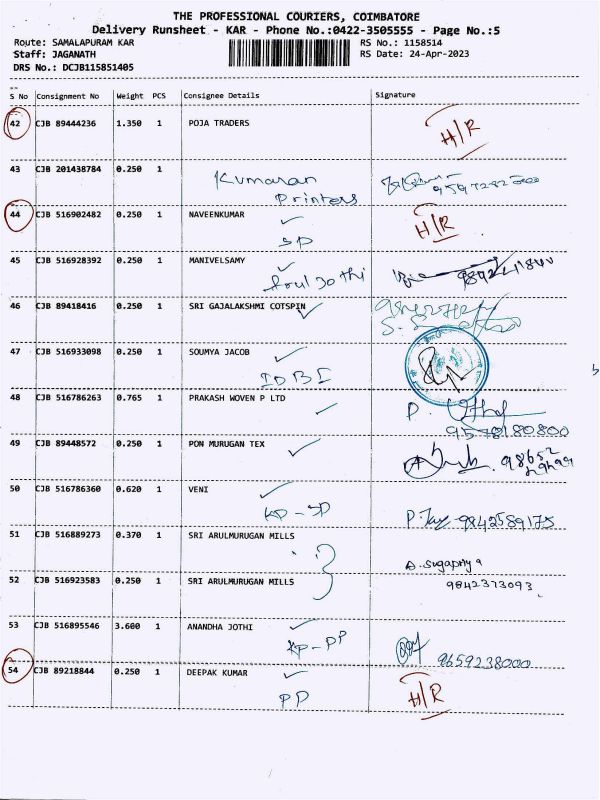 THE PROFESSIONAL COURIERS, COIMBATORE
Delivery Runsheet - KAR - Phone No.:0422-3505555 - Page No.:5
Route: SAMALAPURAM KAR RS No.: 1158514
Staff: JAGANATH RS Date: 24-Apr-2023
DRS No.: DCJB115851405
S No Consignment No Weight PCS Consignee Details Signature
42 CJB 89444236 1.350 1 POJA TRADERS H/R
43 CJB 201438784 0.250 1 Kumaran
Printers
44 CJB 516902482 0.250 1 NAVEENKUMAR H/R
SD
45 CJB 516928392 0.250 1 MANIVELSAMY
Arul Jothi
46 CJB 89418416 0.250 1 SRI GAJALAKSHMI COTSPIN
47 CJB 516933098 0.250 1 SOUMYA JACOB
IDBI
48 CJB 516786263 0.765 1 PRAKASH WOVEN P LTD
9578180800
49 CJB 89448572 0.250 1 PON MURUGAN TEX
50 CJB 516786360 0.620 1 VENI
KP-SD 9842589175
51 CJB 516889273 0.370 1 SRI ARULMURUGAN MILLS
A. Sugapriya
52 CJB 516923583 0.250 1 SRI ARULMURUGAN MILLS 9842373093
53 CJB 516895546 3.600 1 ANANDHA JOTHI
KP-PP 9659238000
54 CJB 89218844 0.250 1 DEEPAK KUMAR H/R
PD